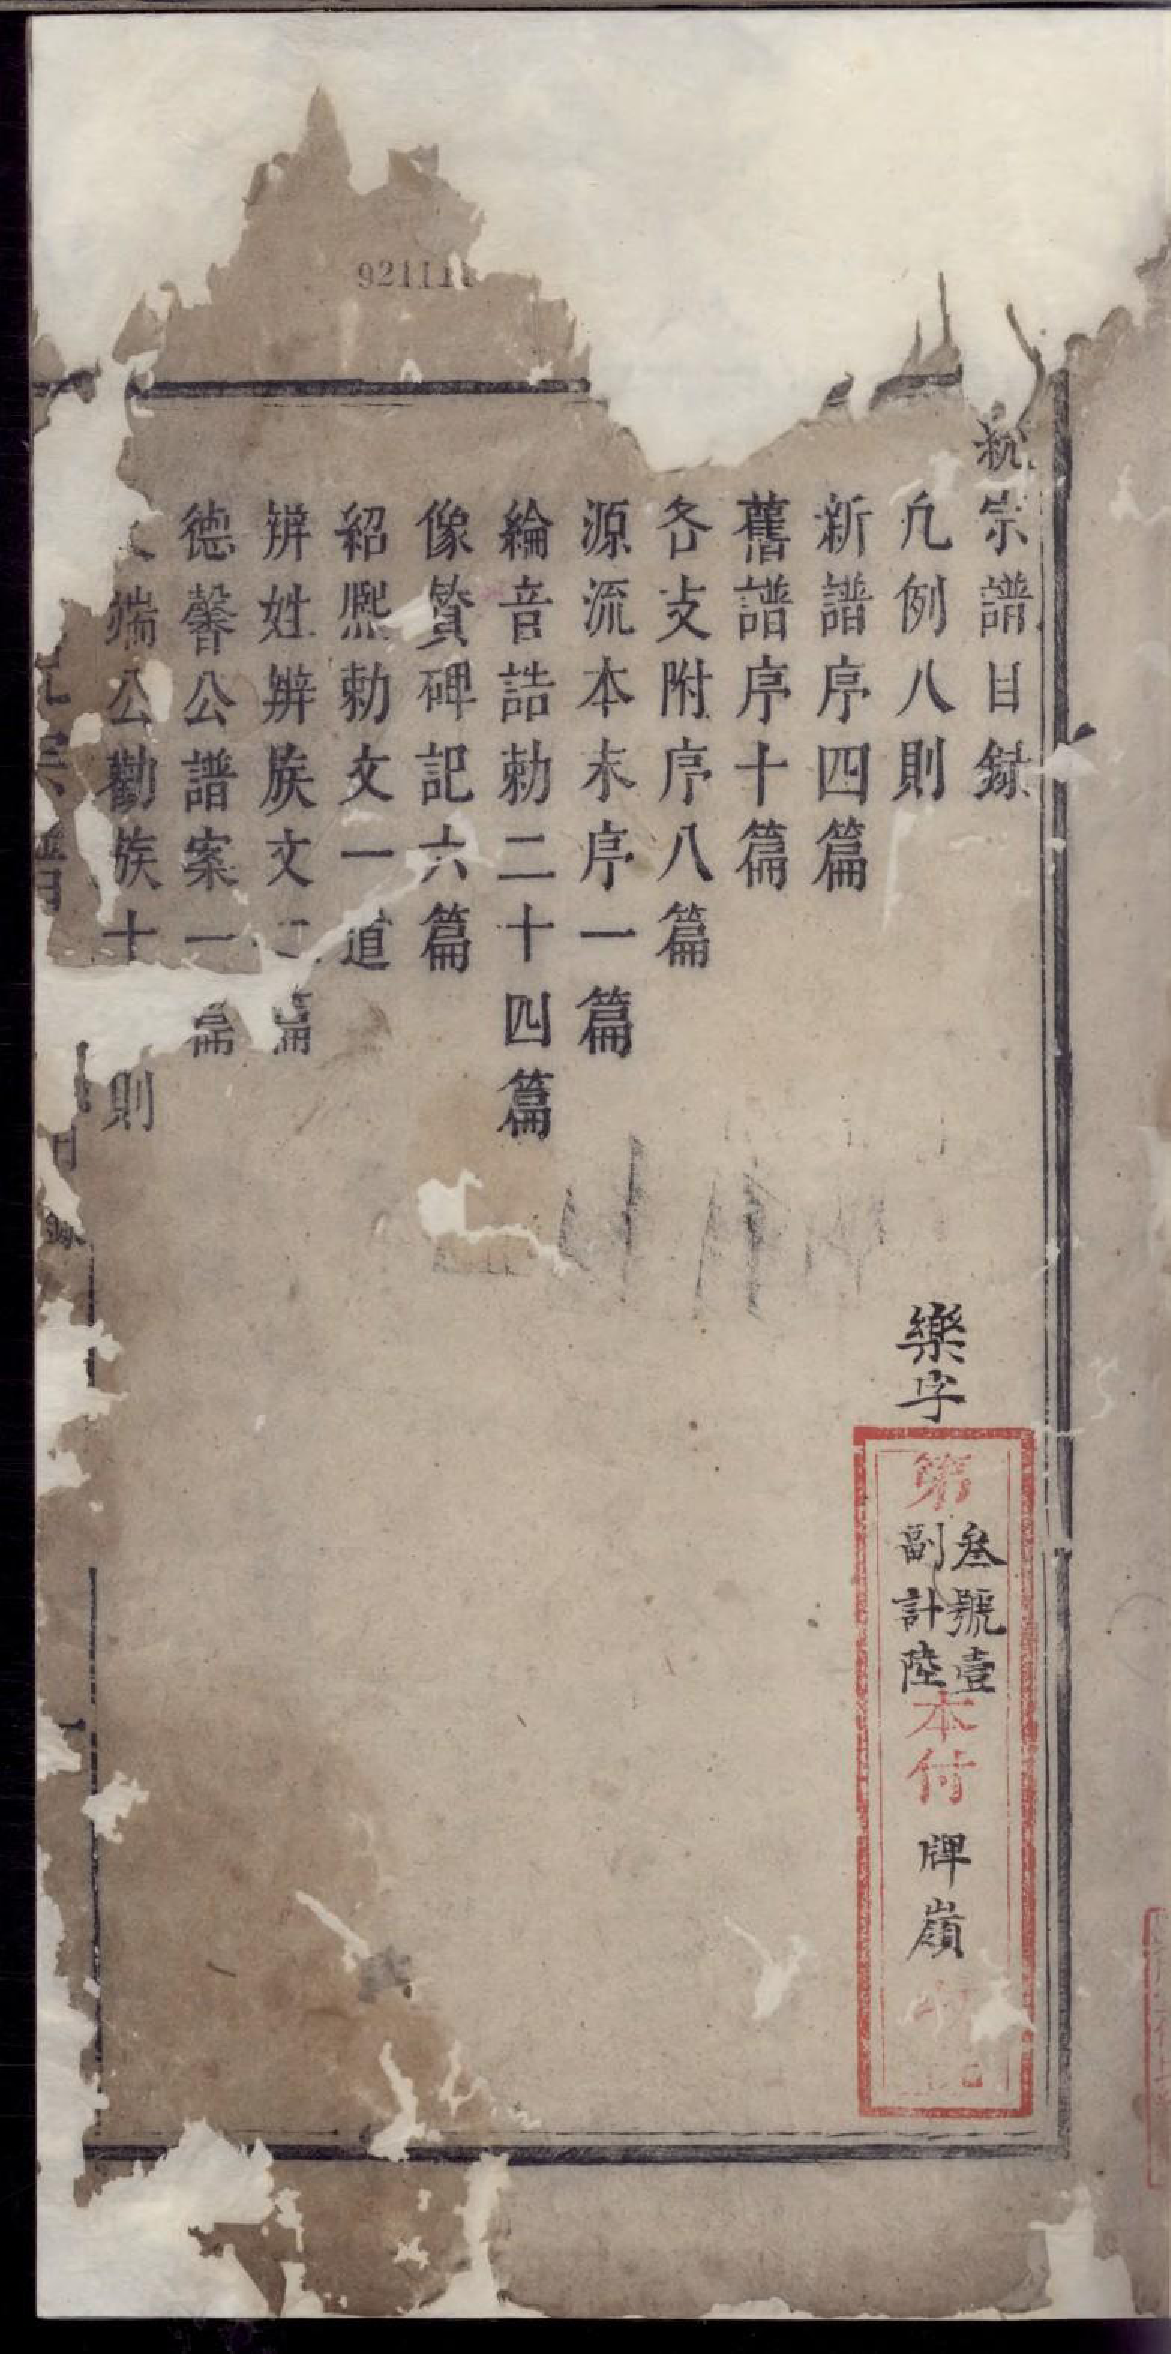 統宗譜目錄
凡例八則
新譜序四篇
舊譜序十篇
各支附序八篇
源流本末序一篇
綸音誥勅二十四篇
像贊碑記六篇
紹熙勅文一道
辨姓辨族文二篇
德馨公譜案一篇
文端公勸族十 則
樂字
第
叁號壹
副計陸
本付
牌嶺
統宗譜
目錄
一